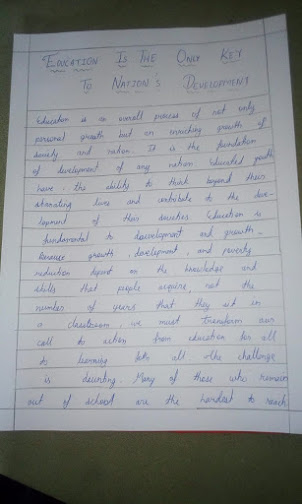 EDUCATION IS THE ONLY KEY
TO NATION'S DEVELOPMENT
Education is an overall process of not only
personal growth but an enriching growth of
society and nation. It is the foundation
of development of any nation Educated youth
have the ability to think beyond their
lives and contribute to the deve-
lopment of their Education is
fundamental to development and growth-
Because growth, development, and poverty
reduction depend on the knowledge and
skills that people acquire, not the
number of years that they sit in
a classroom, we must Transform our
call to action from education for all
to learning for all the challenge
is daunting. Many of those who remain
out of school are the hardest to reach